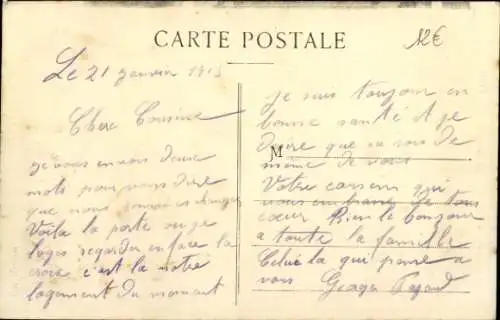 CARTE POSTALE
12€
Le 21 janvier 1915
Chere Cousine
je vous envois deux
mots pour vous dire
que nous sommes changer
Voila la porte ou je
loges regarder en face la
croix c'est la notre
logement du moment
je suis toujour en
bonne santé et je
desire que sa sois de
M
meme de vous
Votre cousin qui
vous embrasse de tous
coeur Bien le bonjour
a toute la famille
Celui la qui pense a
vous Georges